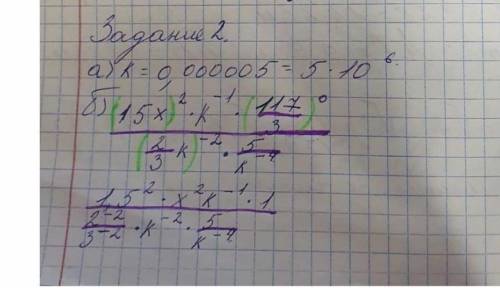 Задание 2.
а) k = 0,000005 = 5 · 10⁶.
б) (1,5x)² · k⁻¹ · (117/3)⁰
(2/3 k)⁻² · 5/k⁻⁴
1,5² · x² k⁻¹ · 1
2⁻²/3⁻² · k⁻² · 5/k⁻⁴